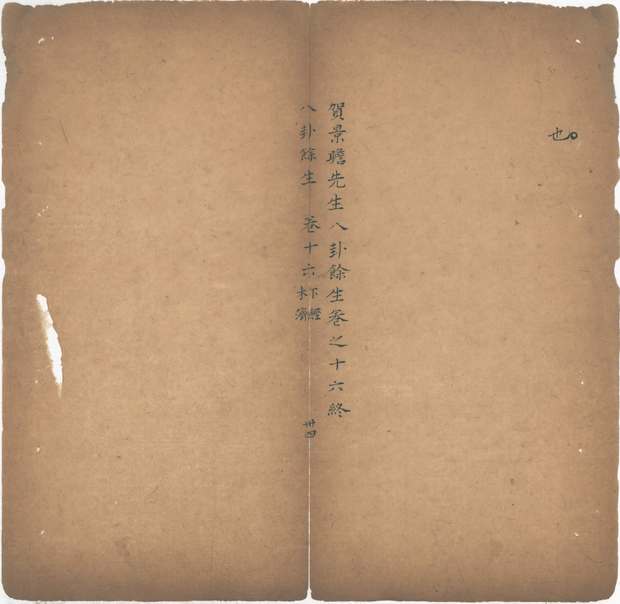 也
賀景瞻先生八卦餘生卷之十六終
八卦餘生 卷十六 下經 未濟 卅四